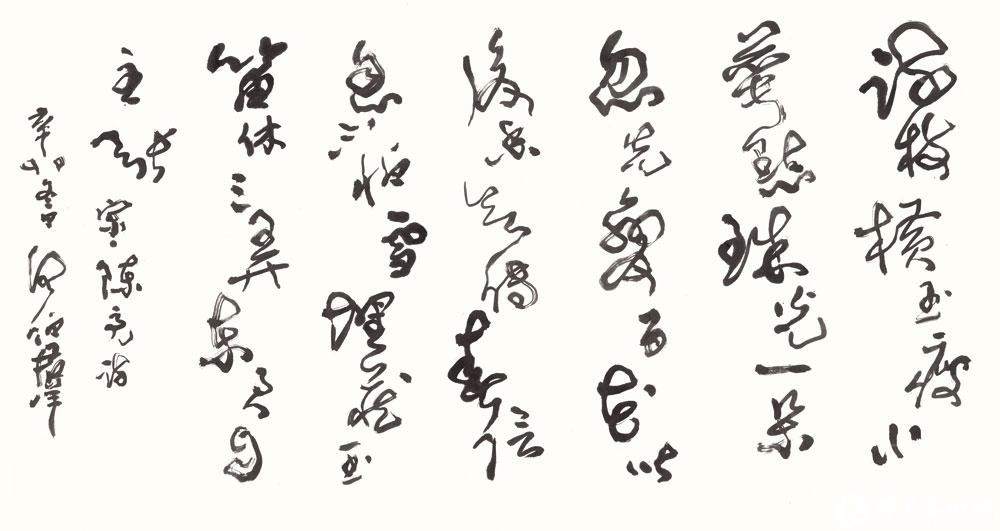 疏枝橫玉瘦小
萼點珠光一朵
忽先變百花皆
後香欲傳春信
息不怕雪埋藏玉
笛休三弄東君正
主張 宋陳亮詩
辛卯冬書